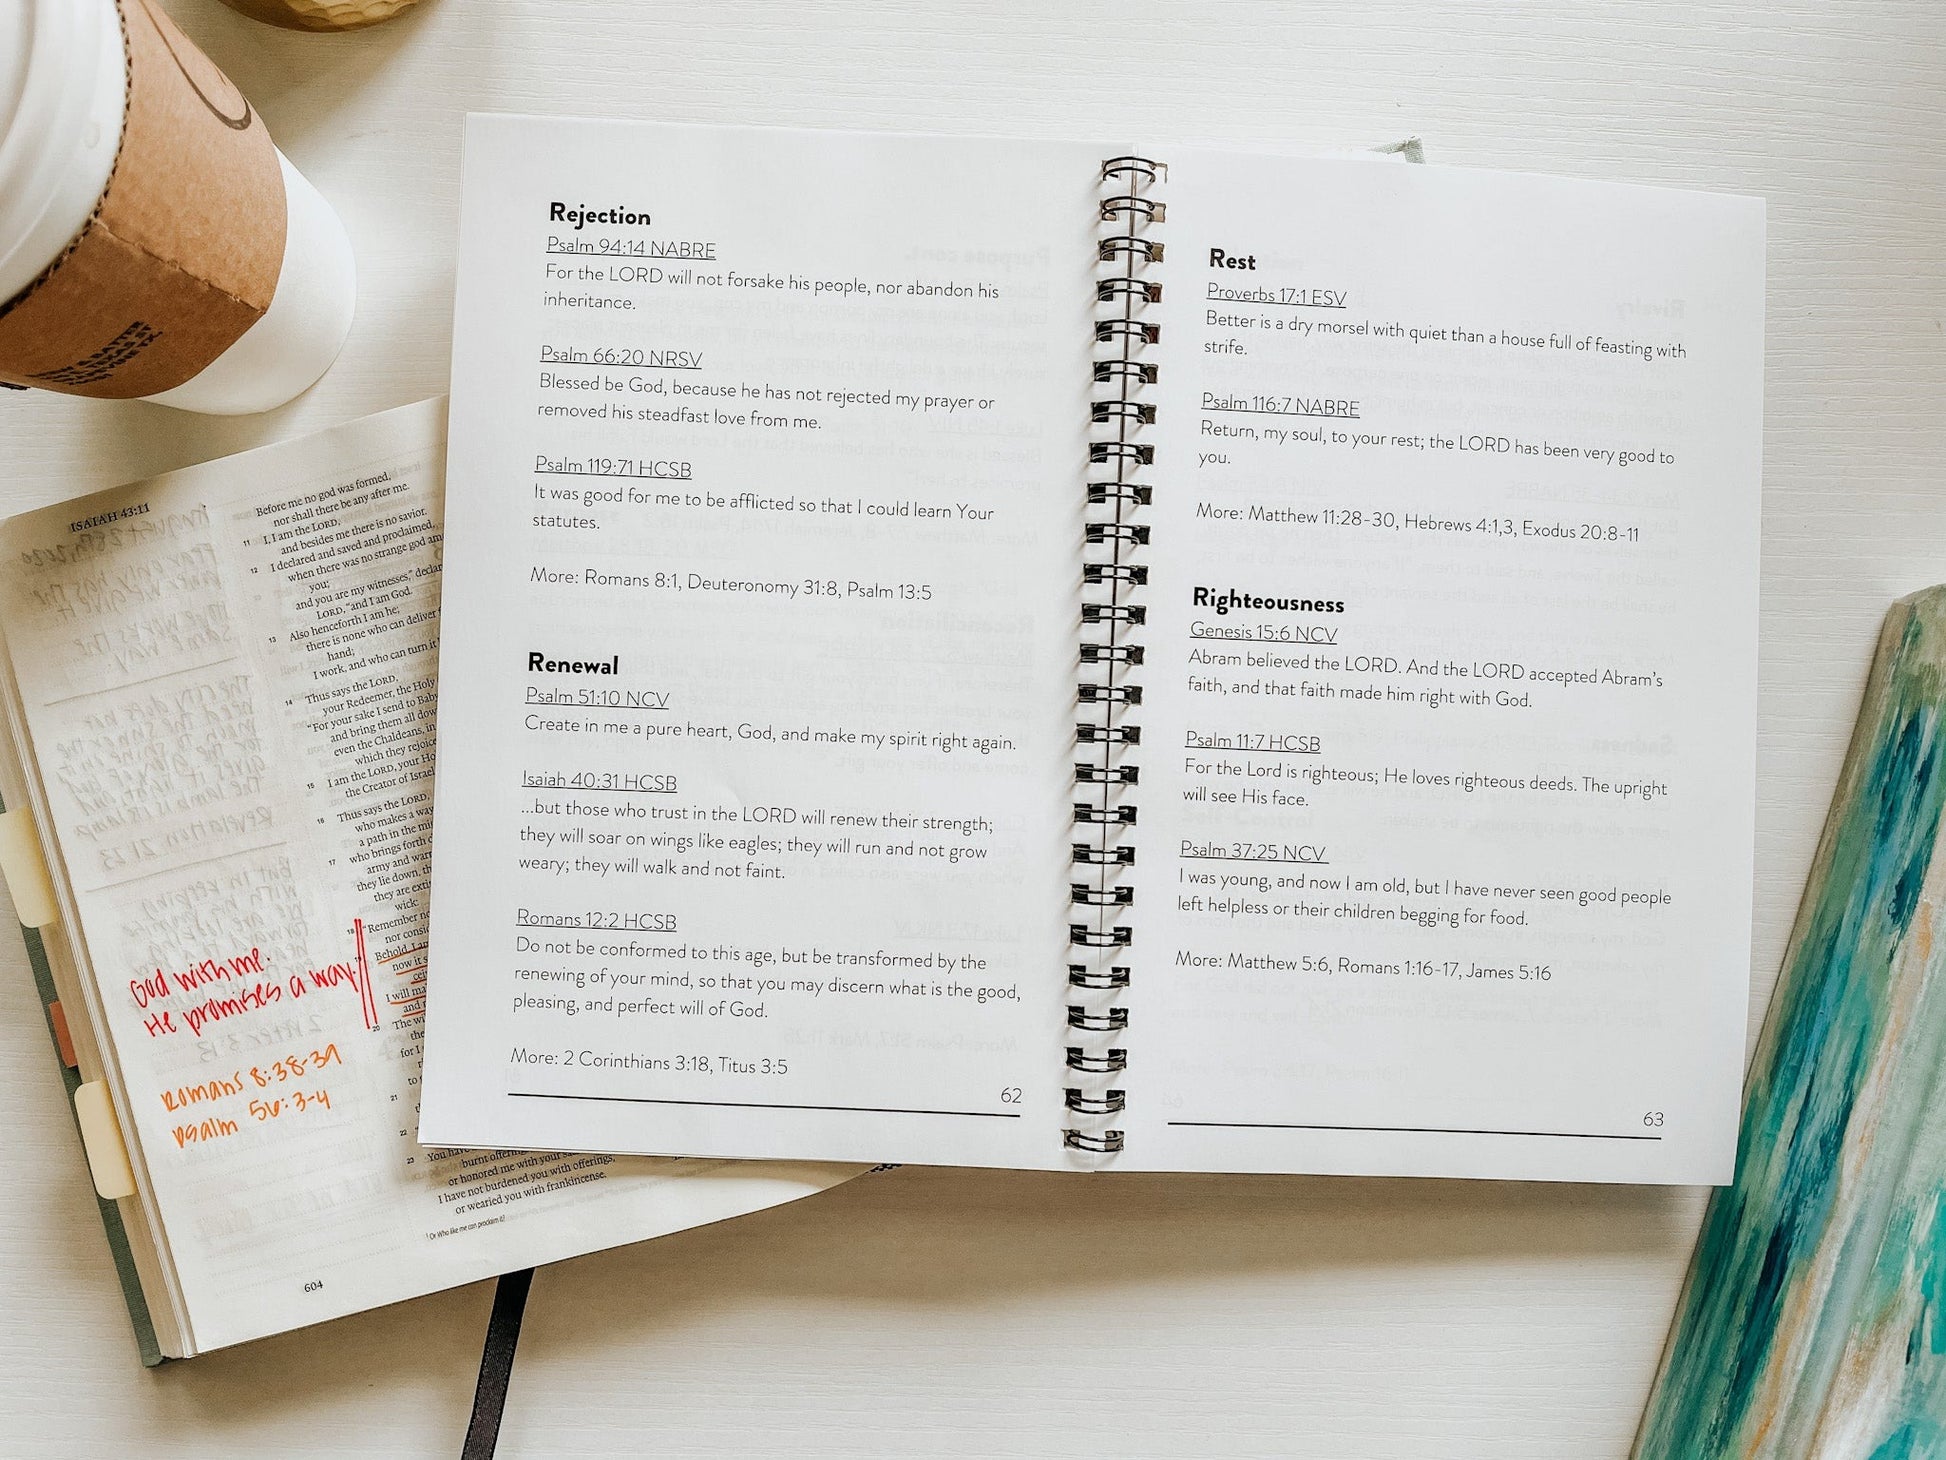 Rejection
Psalm 94:14 NABRE
For the LORD will not forsake his people, nor abandon his
inheritance.
Psalm 66:20 NRSV
Blessed be God, because he has not rejected my prayer or
removed his steadfast love from me.
Psalm 119:71 HCSB
It was good for me to be afflicted so that I could learn Your
statutes.
More: Romans 8:1, Deuteronomy 31:8, Psalm 13:5
Renewal
Psalm 51:10 NCV
Create in me a pure heart, God, and make my spirit right again.
Isaiah 40:31 HCSB
...but those who trust in the LORD will renew their strength;
they will soar on wings like eagles; they will run and not grow
weary; they will walk and not faint.
Romans 12:2 HCSB
Do not be conformed to this age, but be transformed by the
renewing of your mind, so that you may discern what is the good,
pleasing, and perfect will of God.
More: 2 Corinthians 3:18, Titus 3:5
62
Rest
Proverbs 17:1 ESV
Better is a dry morsel with quiet than a house full of feasting with
strife.
Psalm 116:7 NABRE
Return, my soul, to your rest; the LORD has been very good to
you.
More: Matthew 11:28-30, Hebrews 4:1,3, Exodus 20:8-11
Righteousness
Genesis 15:6 NCV
Abram believed the LORD. And the LORD accepted Abram's
faith, and that faith made him right with God.
Psalm 11:7 HCSB
For the Lord is righteous; He loves righteous deeds. The upright
will see His face.
Psalm 37:25 NCV
I was young, and now I am old, but I have never seen good people
left helpless or their children begging for food.
More: Matthew 5:6, Romans 1:16-17, James 5:16
63
ISAIAH 43:11
Before me no god was formed,
nor shall there be any after me.
11 I, I am the LORD,
and besides me there is no savior.
12 I declared and saved and proclaimed,
when there was no strange god
you;
and you are my witnesses,"
LORD, "and I am God.
13 Also henceforth I am he;
there is none who can deliver
hand;
I work, and who can turn it
14 Thus says the LORD,
your Redeemer, the Holy
"For your sake I send to
and bring them all down
even the Chaldeans, in
which they rejoice
15 I am the LORD, your
the Creator of Israel
16 Thus says the LORD,
who makes a way
a path in the
17 who brings forth
army and
they lie down,
they are
wick:
18 "Remember
nor
19 Behold, I
now it
I will
and
20 The
the
for I
to
21
22
23 You have
burnt
or honored me with your
I have not burdened you with offerings,
or wearied you with frankincense.
1 Or Who like me can proclaim it?
604
God with me.
He promises a way.
Romans 8:38-39
Psalm 56:3-4